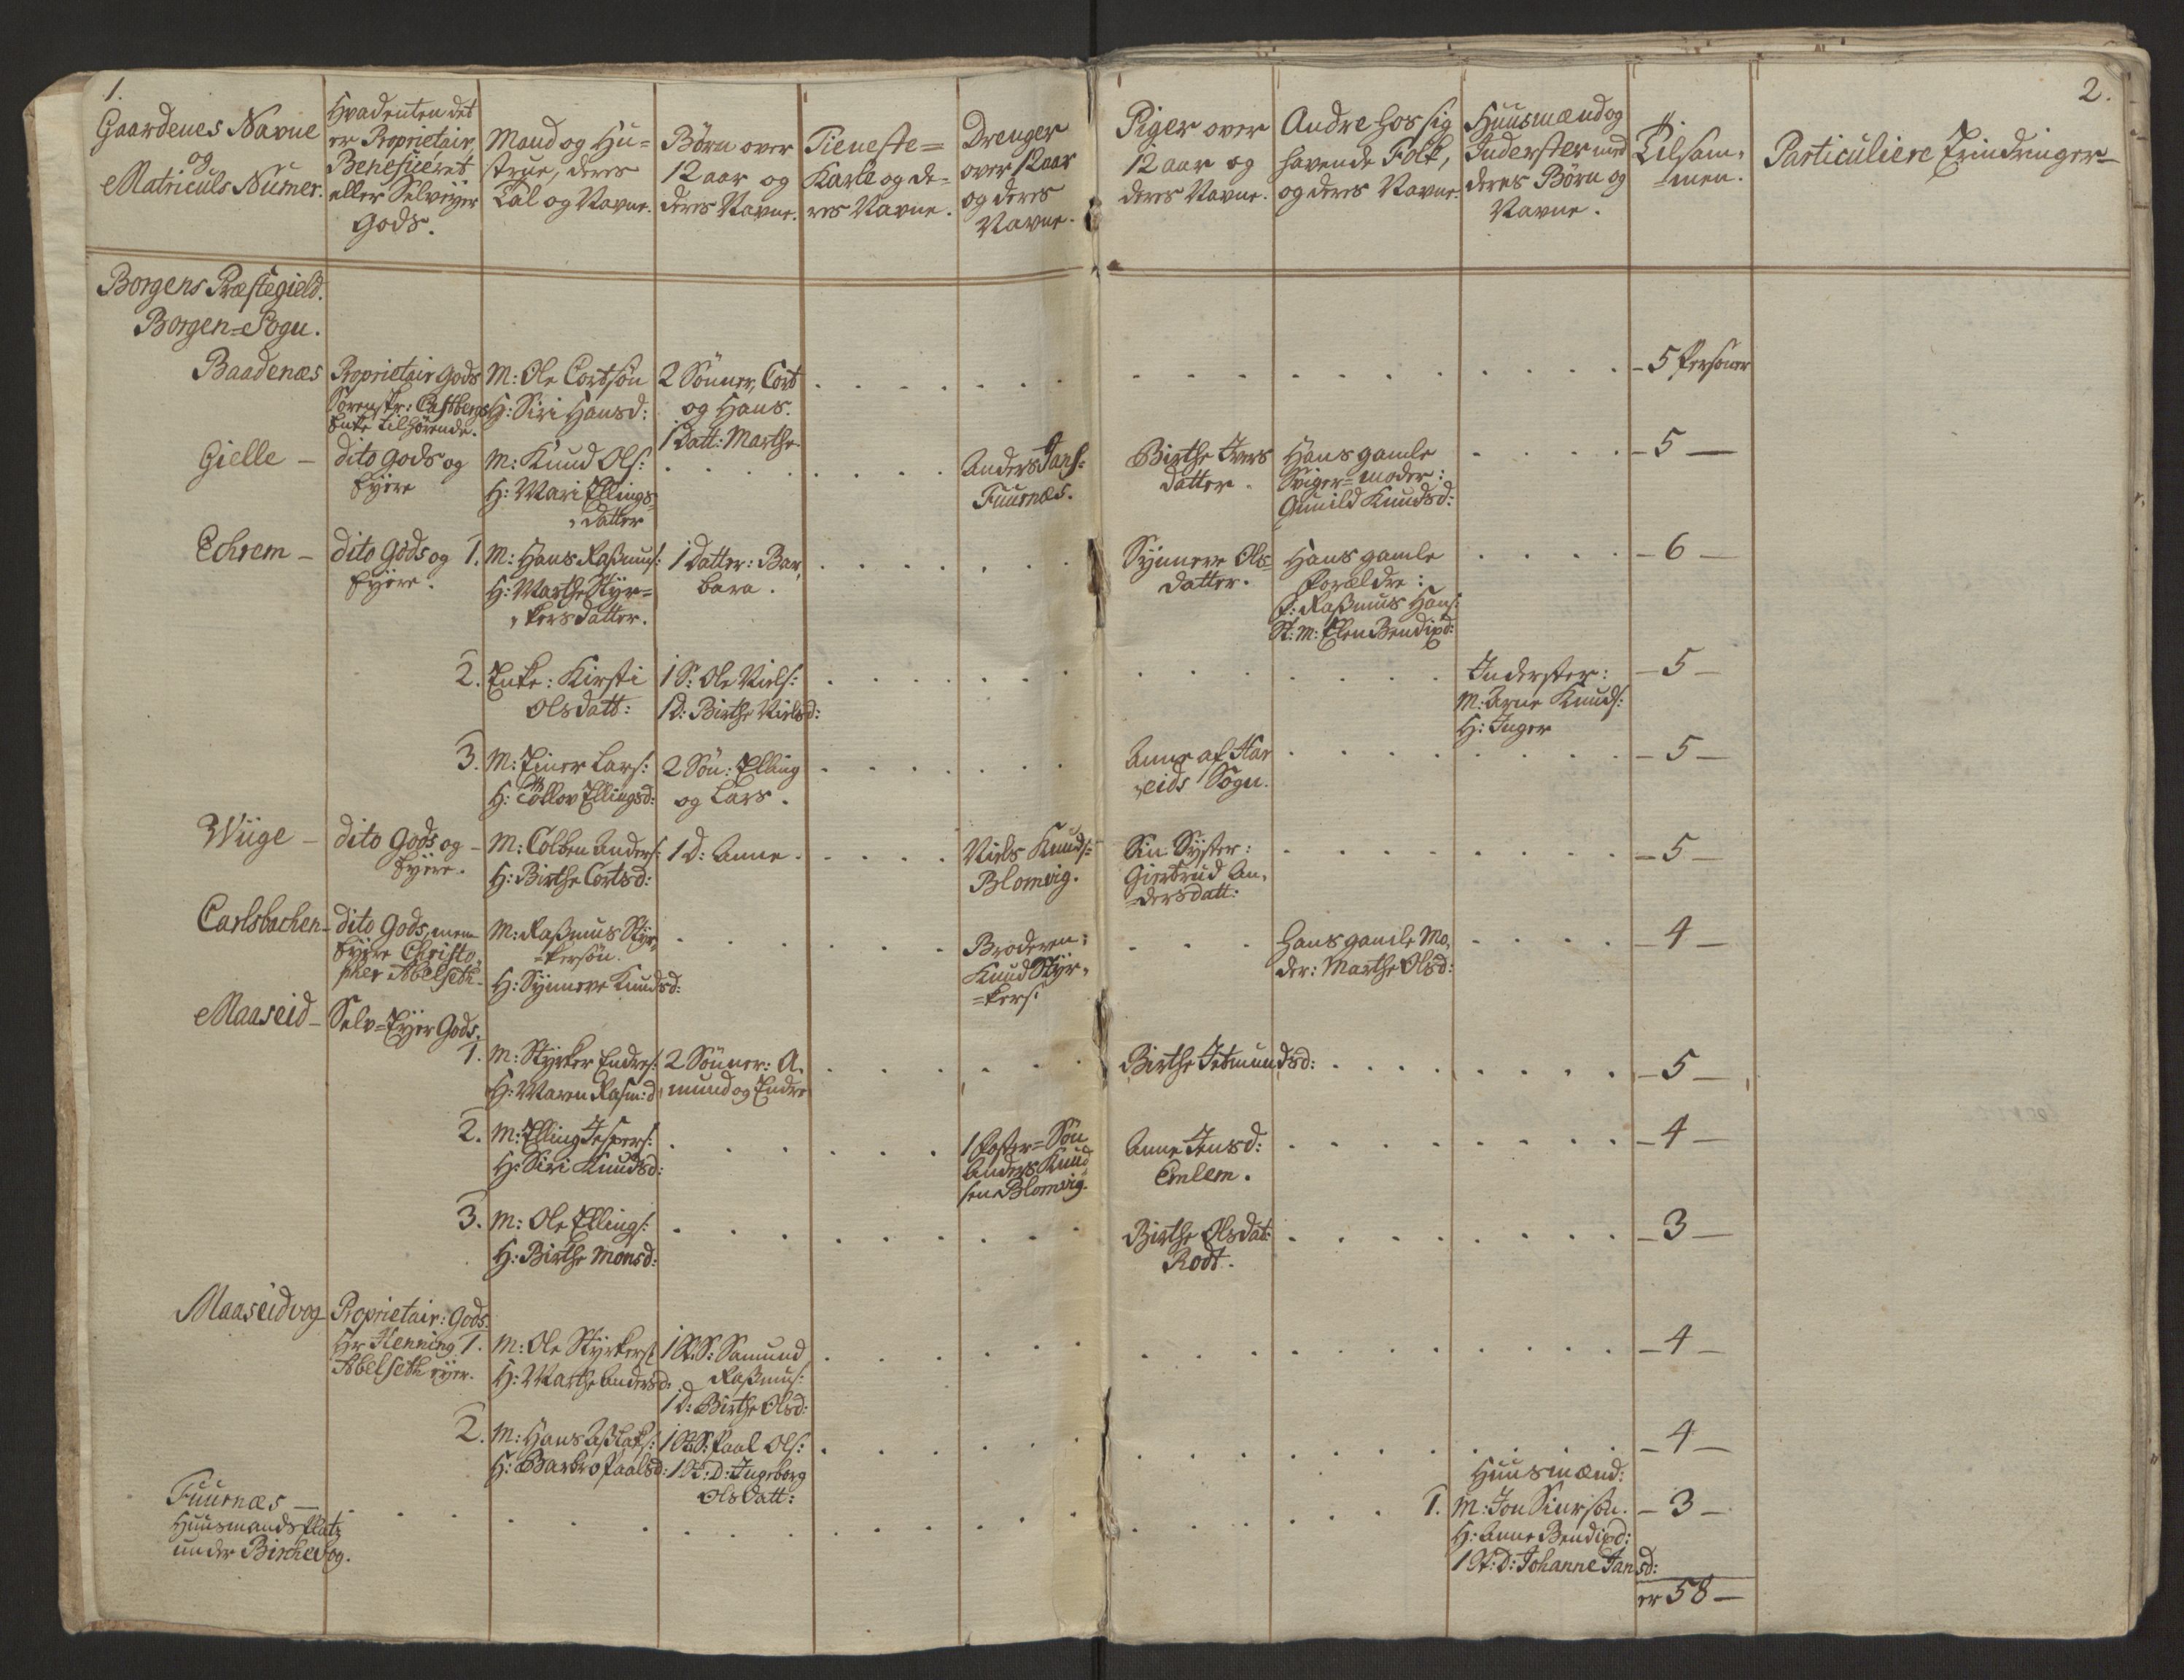 1.
Gaardenes Navne
og
Matriculs Numer.
Hvadenten det
er Proprietair,
Beneficeret
eller Selveyer
Gods.
Mand og Hu-
strue, deres
Tal og Navne.
Børn over
12 aar og
deres Navne.
Tieneste-
Karle og de-
res Navne.
Drenger
over 12 aar
og deres
Navne.
Piger over
12 aar og
deres Navne.
Andre hos sig
havende Folk,
og deres Navne.
Huusmænd og
Inderster med
deres Børn og
Navne.
Tilsam-
-men.
Particuliere Erindringer
2.
Borgens Præstegield.
Borgen-Sogn.
Baadenæs
Proprietair Gods
Sorenskr: Castbergs
Enke tilhørende.
M: Ole Cortsøn
H: Siri Hansd:
2 Sønner, Cort
og Hans.
1 Datt: Marthe
- 5 Personer
Gielle -
dito Gods og
Eyere
M: Knud Ols:
H: Mari Ellings-
datter
Anders Jans:
Fuurnæs.
Birthe Ivers
datter.
Hans gamle
Sviger-moder:
Gunild Knudsd:
- 5 -
Echrem -
dito Gods og
Eyere.
1. M: Hans Rasmus:
H: Marthe Styr-
kersdatter.
1 Datter: Bar-
bara.
Synneve Ols-
datter.
Hans gamle
Forældre:
F: Rasmus Hans:
St: M: Elen Bendixd:
- 6 -
2. Enke: Kirsti
Olsdatt:
1 S: Ole Niels:
1 D: Birthe Nielsd:
Inderster:
M: Arne Knuds:
H: Inger
- 5 -
3. M: Einer Lars:
H: Tøllov Ellingsd:
2 Søn: Elling
og Lars.
Anne af Har
eids Sogn.
- 5 -
Wiige -
dito Gods og -
Eyere.
M: Colben Anders:
H: Birthe Cortsd:
1 D: Anne.
Niels Knuds:
Blomvig.
Sin Syster:
Giertrud An-
-dersdatt:
- 5 -
Carlsbachen -
dito Gods, men
Eyere Christo-
pher Abelseth -
M: Rasmus Styr-
-kersøn.
H: Synneve Knudsd:
Broderen:
Knud Styr-
-kers:
Hans gamle Mo-
der: Marthe Olsd:
- 4 -
Maaseid -
Selv-Eyer Gods.
1. M: Styrker Endres:
H: Maren Rasm:d
2 Sønner: A-
mund og Endre
Birthe Jetmundsd:
- 5 -
2. M: Elling Jespers:
H: Siri Knudsd:
1 Foster-Søn
Anders Knud
sen Blomvig.
Anne Jensd:
Emlem.
- 4 -
3. M: Ole Ellings:
H: Birthe Monsd:
Birthe Olsdat:
Rodt.
- 3 -
Maaseidvog
Proprietair: Gods.
Hr Henning
Abelseth eyer.
1. M: Ole Styrkers:
H: Marthe Andersd:
1 St: S: Samund
Rasmus:
1 D: Birthe Olsd:
- 4 -
2. M: Hans Aslaks:
H: Barbro Paalsd:
1 St: S: Paal Ols:
1 St: D: Ingeborg
Olsdatt:
- 4 -
Fuurnæs -
Huusmands Platz
under Birchevog.
Huusmænd:
1. M: Jon Siursøn.
H: Anne Bendixd:
1 St: D: Johanne Jansd:
- 3 -
er 58 -